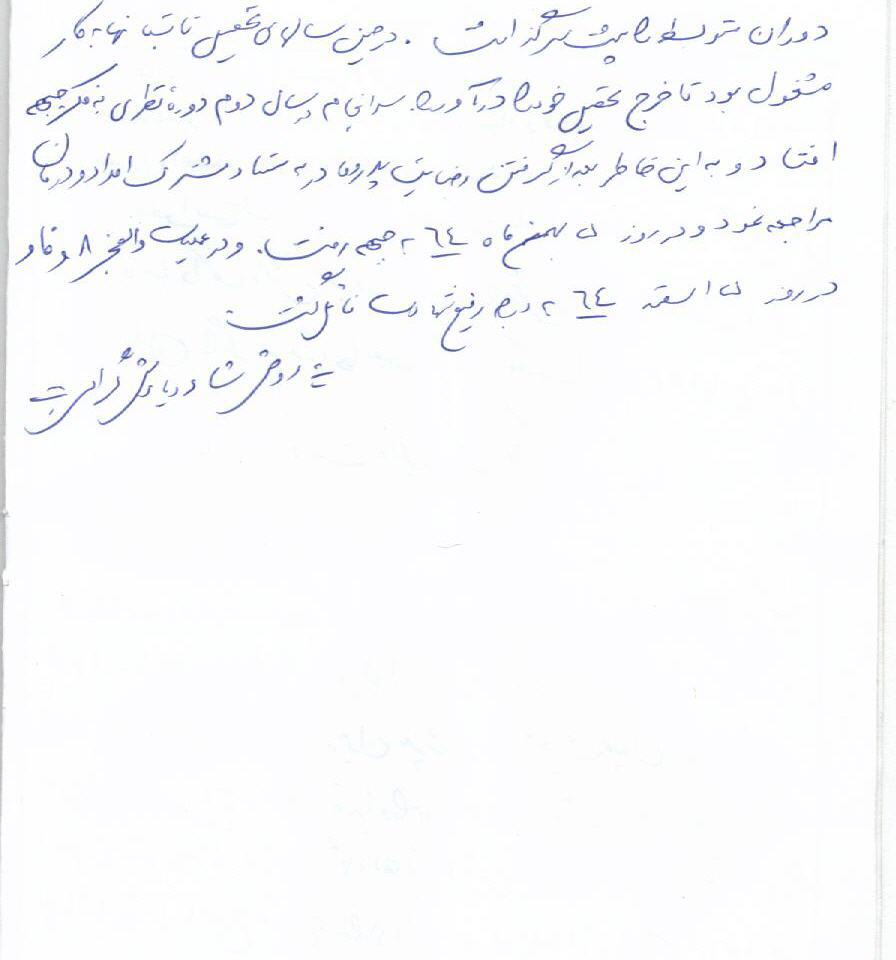 دوران متوسطه را پشت سر گذاشت . در حین سالهای تحصیل تابستانها به کار
مشغول بود تا خرج تحصیل خود را در آورد. سرانجام در سال دوم دورهٔ نظری به فکر جبهه
افتاد و به این خاطر بعد از گرفتن رضایت پدر و مادر به ستاد مشترک امداد و درمان
مراجعه نمود و در روز بهمن ماه ٦٤ به جبهه رفت. و در عملیات والفجر ٨ و فاو
در روز اسفند ٦٤ به درجه رفیع شهادت نائل گشت
روحش شاد و یادش گرامی